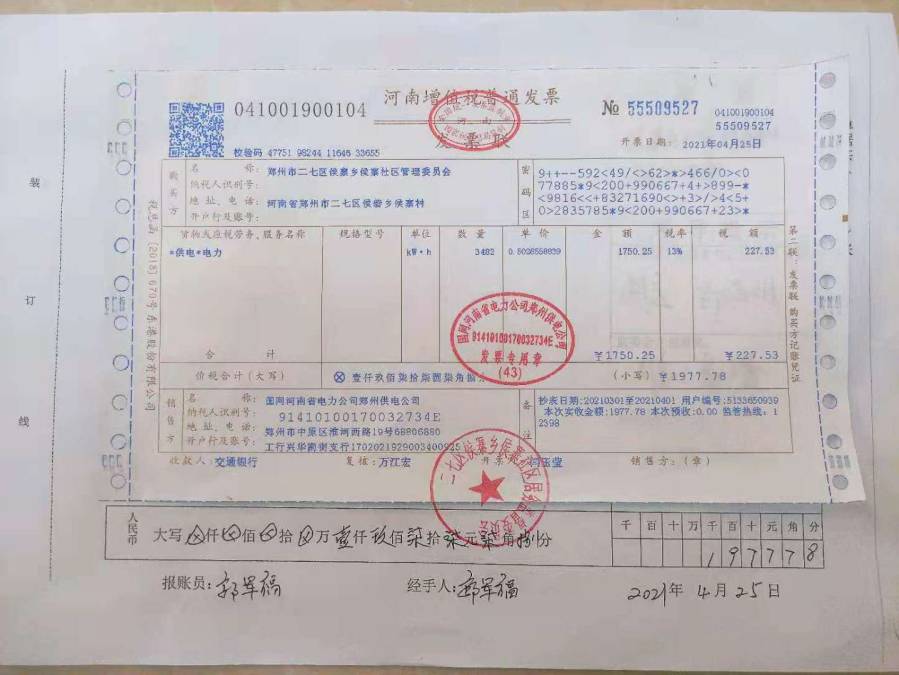 河南增值税普通发票
041001900104
№ 55509527
041001900104
55509527
校验码 47751 98244 11646 33655
开票日期: 2021年04月25日
购买方
名 称: 郑州市二七区侯寨乡侯寨社区管理委员会
纳税人识别号:
地 址、电 话: 河南省郑州市二七区侯寨乡侯寨村
开户行及账号:
密码区
9++--592<49/<>62>*>466/0><0
77885*9<200+990667+4+>899-*
<9816<<+83271690<>+3>/>4<5+
0>2835785*9<200+990667+23>*
货物或应税劳务、服务名称 规格型号 单位 数 量 单 价 金 额 税率 税 额
*供电*电力 kW·h 3482 0.5026558839 1750.25 13% 227.53
合 计 ¥1750.25 ¥227.53
价税合计(大写) ⊗壹仟玖佰柒拾柒圆柒角捌分 (小写) ¥1977.78
销售方
名 称: 国网河南省电力公司郑州供电公司
纳税人识别号: 91410100170032734E
地 址、电 话: 郑州市中原区淮河西路19号68806880
开户行及账号: 工行兴华南街支行1702021929003400925
备注
抄表日期:20210301至20210401 用户编号:5133650939
本次实收金额:1977.78 本次预收:0.00 监管热线:1
2398
收款人: 交通银行 复核: 万江宏 开票 销售方: (章)
国网河南省电力公司郑州供电公司
91410100170032734E
发票专用章
(43)
税总函〔2018〕670号东港股份有限公司
第二联:发票联 购买方记账凭证
装
订
线
人民币
大写⊗仟⊗佰⊗拾⊗万壹仟玖佰柒拾柒元柒角捌分
千 百 十 万 千 百 十 元 角 分
1 9 7 7 7 8
报账员: 郭军福 经手人: 郭军福 2021年 4月 25日